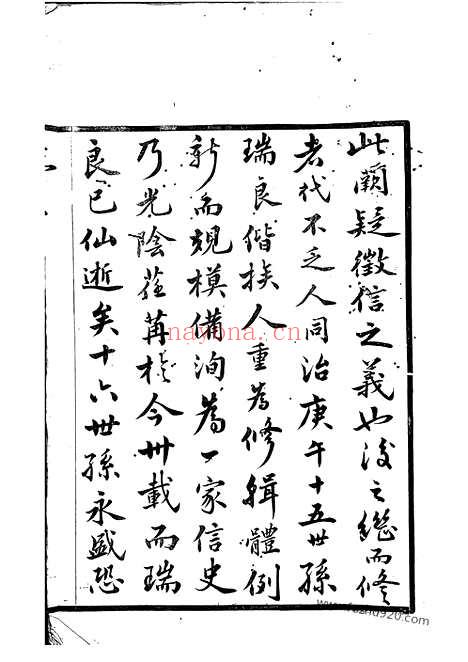 此闕疑徵信之義也後之繼而修
者代不乏人同治庚午十五世孫
瑞良偕族人重為修輯體例
新而規模備洵為一家信史
乃光陰荏苒於今卅載而瑞
良已仙逝矣十六世孫永盛恐
nayona.cn